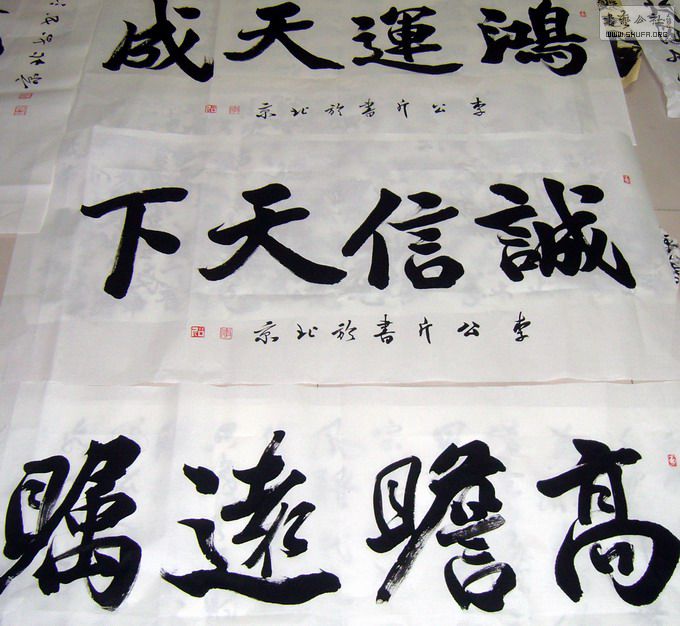 書藝公社
WWW.SHUFA.ORG
鴻運天成
李公書於北京
誠信天下
李公書於北京
高瞻遠瞩